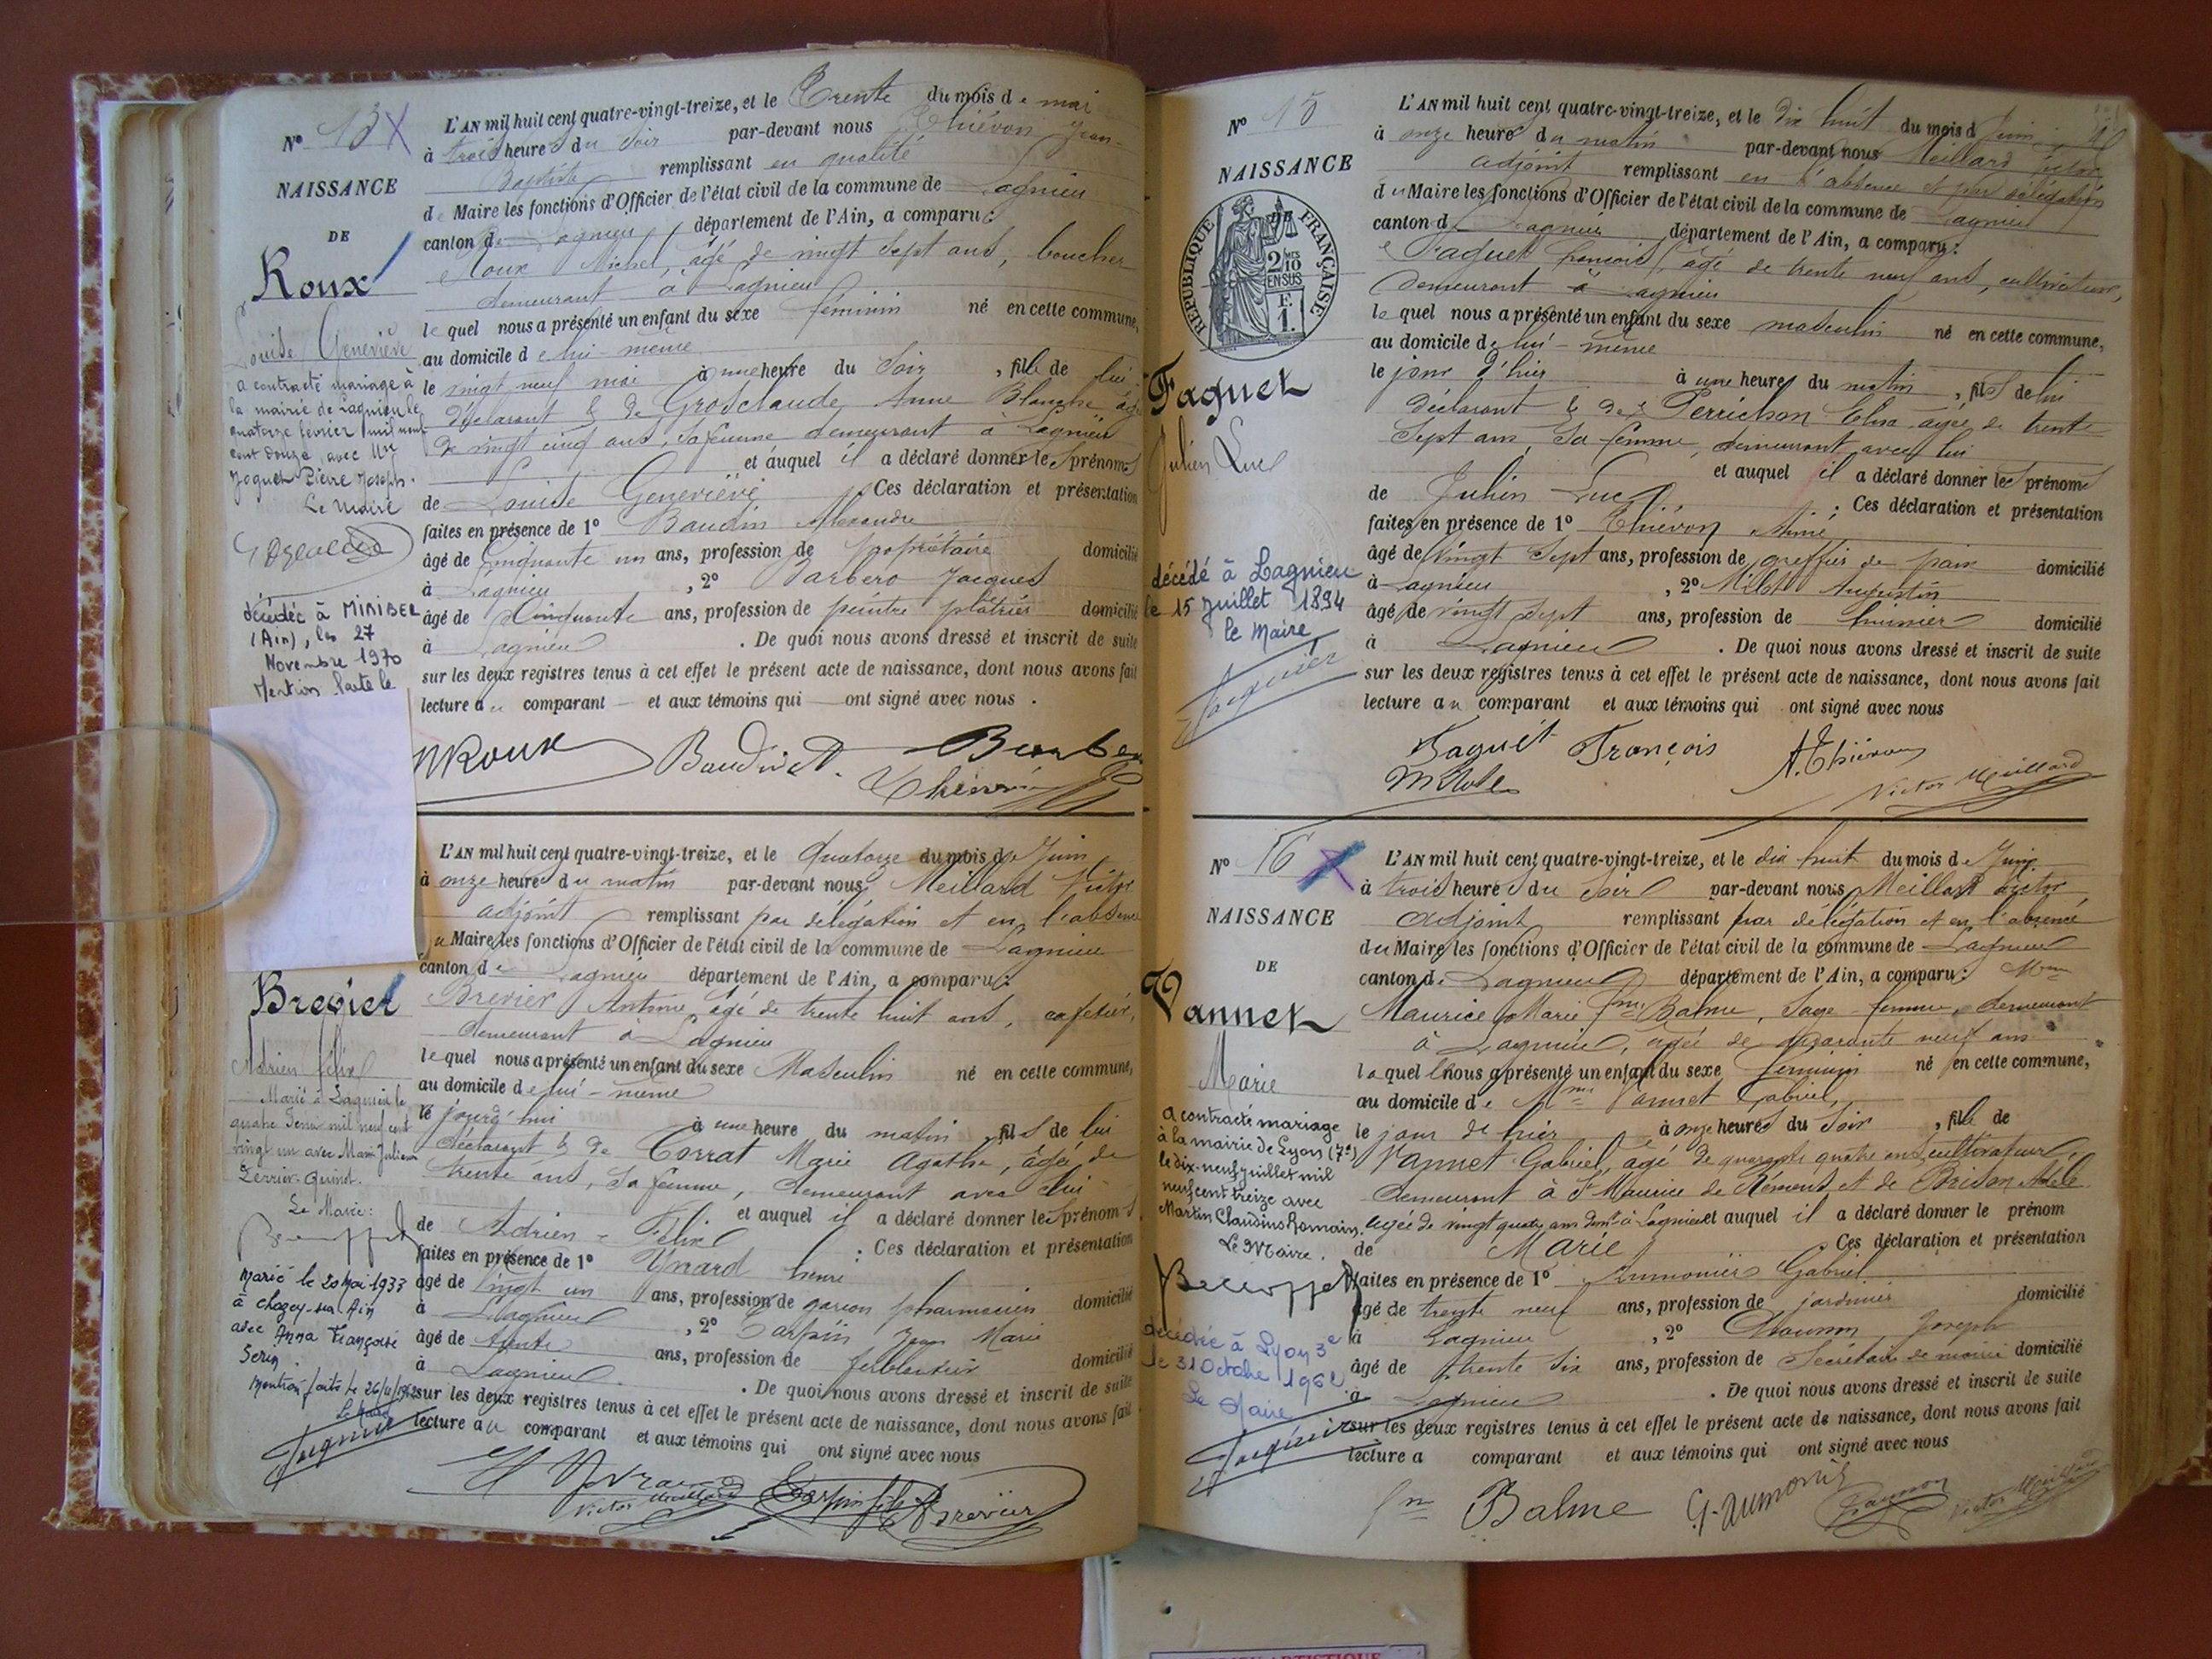 Nº 13 X
NAISSANCE
DE
Roux
Louise Geneviève
a contracté mariage à
la mairie de Lagnieu le
quatorze février mil neuf
cent douze avec Mr
Joguet Pierre Joseph.
Le Maire
décédée à MIRIBEL
(Ain), le 27
Novembre 1970
Mention faite le
L'AN mil huit cent quatre-vingt-treize, et le Trente du mois de mai
à trois heures du soir par-devant nous Thiévon Jean-
Baptiste remplissant en qualité
de Maire les fonctions d'Officier de l'état civil de la commune de Lagnieu
canton de Lagnieu, département de l'Ain, a comparu :
Roux Michel, âgé de vingt sept ans, boucher
demeurant à Lagnieu
lequel nous a présenté un enfant du sexe féminin né en cette commune,
au domicile de lui-même
le vingt neuf mai à une heure du soir, fille de lui
déclarant & de Grosclaude Anne Blanche âgée
de vingt cinq ans, sa femme demeurant à Lagnieu
et auquel il a déclaré donner les prénoms
de Louise Geneviève Ces déclaration et présentation
faites en présence de 1º Baudin Alexandre
âgé de Cinquante un ans, profession de propriétaire domicilié
à Lagnieu, 2º Barbero Jacques
âgé de Cinquante ans, profession de peintre plâtrier domicilié
à Lagnieu. De quoi nous avons dressé et inscrit de suite
sur les deux registres tenus à cet effet le présent acte de naissance, dont nous avons fait
lecture au comparant et aux témoins qui ont signé avec nous.
MRoux Baudin A. Barbe
Thiévon
Brevier
Adrien Félix
Marié à Lagnieu le
quatre Juin mil neuf cent
vingt un avec Marie Julienne
Perrier-Guinet.
Le Maire :
Marié le 20 Mai 1933
à Chazey-sur-Ain
avec Anna Françoise
Serin.
L'AN mil huit cent quatre-vingt-treize, et le Quatorze du mois de Juin
à onze heures du matin par-devant nous Meillard Victor
adjoint remplissant par délégation et en l'absence
du Maire les fonctions d'Officier de l'état civil de la commune de Lagnieu
canton de Lagnieu département de l'Ain, a comparu :
Brevier Antoine, âgé de trente huit ans, cafetier,
demeurant à Lagnieu
lequel nous a présenté un enfant du sexe Masculin né en cette commune,
au domicile de lui-même
le jourd'hui à une heure du matin, fils de lui
déclarant & de Corrat Marie Agathe, âgée de
trente ans, sa femme, demeurant avec lui
et auquel il a déclaré donner les prénoms
de Adrien Félix : Ces déclaration et présentation
faites en présence de 1º Yvrard henri
âgé de Vingt un ans, profession de garçon pharmacien domicilié
à Lagnieu, 2º Carpin Jean Marie
âgé de trente ans, profession de ferblantier domicilié
à Lagnieu. De quoi nous avons dressé et inscrit de suite
sur les deux registres tenus à cet effet le présent acte de naissance, dont nous avons fait
lecture au comparant et aux témoins qui ont signé avec nous
H Yvrard Victor Meillard Carpin fils Brevier
Nº 15
NAISSANCE
RÉPUBLIQUE FRANÇAISE
2 MES
10
EN SUS
F.
1.
Faguet
Julien Luc
décédé à Lagnieu
le 15 Juillet 1894
le Maire
L'AN mil huit cent quatre-vingt-treize, et le dix huit du mois de Juin
à onze heures du matin par-devant nous Meillard Victor
adjoint remplissant en l'absence et par délégation
du Maire les fonctions d'Officier de l'état civil de la commune de Lagnieu
canton de Lagnieu, département de l'Ain, a comparu :
Faguet François, âgé de trente neuf ans, cultivateur,
demeurant à Lagnieu
lequel nous a présenté un enfant du sexe masculin né en cette commune,
au domicile de lui-même
le jour d'hier à une heure du matin, fils de lui
déclarant & de Perrichon Elisa âgée de trente
sept ans, sa femme, demeurant avec lui
et auquel il a déclaré donner les prénoms
de Julien Luc. Ces déclaration et présentation
faites en présence de 1º Thiévon Aimé
âgé de Vingt sept ans, profession de greffier de paix domicilié
à Lagnieu, 2º Augustin
âgé de vingt sept ans, profession de domicilié
à Lagnieu. De quoi nous avons dressé et inscrit de suite
sur les deux registres tenus à cet effet le présent acte de naissance, dont nous avons fait
lecture au comparant et aux témoins qui ont signé avec nous
Faguet François A. Thiévon
Victor Meillard
Nº 16 X
NAISSANCE
DE
Vannet
Marie
a contracté mariage
à la mairie de Lyon (7e)
le dix-neuf juillet mil
neuf cent treize avec
Martin Claudius Romain.
Le Maire.
décédée à Lyon 3e
le 31 Octobre
Le Maire
L'AN mil huit cent quatre-vingt-treize, et le dix huit du mois de Juin
à trois heures du soir par-devant nous Meillard Victor
adjoint remplissant par délégation et en l'absence
du Maire les fonctions d'Officier de l'état civil de la commune de Lagnieu
canton de Lagnieu département de l'Ain, a comparu : Mme
Maurice Marie fme Balme, Sage-femme, demeurant
à Lagnieu, âgée de quarante neuf ans
laquelle nous a présenté un enfant du sexe féminin né en cette commune,
au domicile de Mme Vannet Gabriel,
le jour de hier à onze heures du soir, fille de
Vannet Gabriel, âgé de quarante quatre ans, cultivateur
demeurant à St Maurice de Rémens, et de Brison Adèle
âgée de vingt quatre ans demt à Lagnieu et auquel il a déclaré donner le prénom
de Marie Ces déclaration et présentation
faites en présence de 1º Aumonier Gabriel
âgé de trente neuf ans, profession de jardinier domicilié
à Lagnieu, 2º Joseph
âgé de trente six ans, profession de Secrétaire de mairie domicilié
à Lagnieu. De quoi nous avons dressé et inscrit de suite
sur les deux registres tenus à cet effet le présent acte de naissance, dont nous avons fait
lecture a comparant et aux témoins qui ont signé avec nous
fme Balme G. Aumonier Victor Meillard